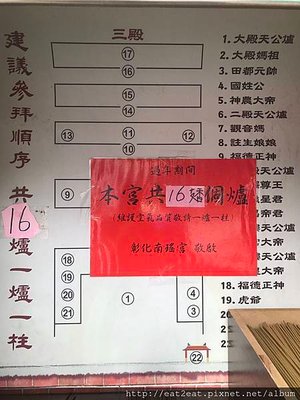 三殿
建議參拜順序 共16爐一爐一柱
⑰
⑯
⑮
⑭
⑬
⑪
⑫
⑩
⑨
⑱
⑲
⑳
㉑
①
④
③
㉒
1. 大殿天公爐
2. 大殿媽祖
3. 田都元帥
4. 國姓公
5. 神農大帝
6. 二殿天公爐
7. 觀音媽
8. 註生娘娘
9. 福德正神
尊王
星君
帝君
天公爐
大帝
天公爐
大帝
18. 福德正神
19. 虎爺
過年期間
本宮共16個爐
(維護空氣品質敬請一爐一柱)
彰化南瑤宮 敬啟
http://eat2eat.pixnet.net/album